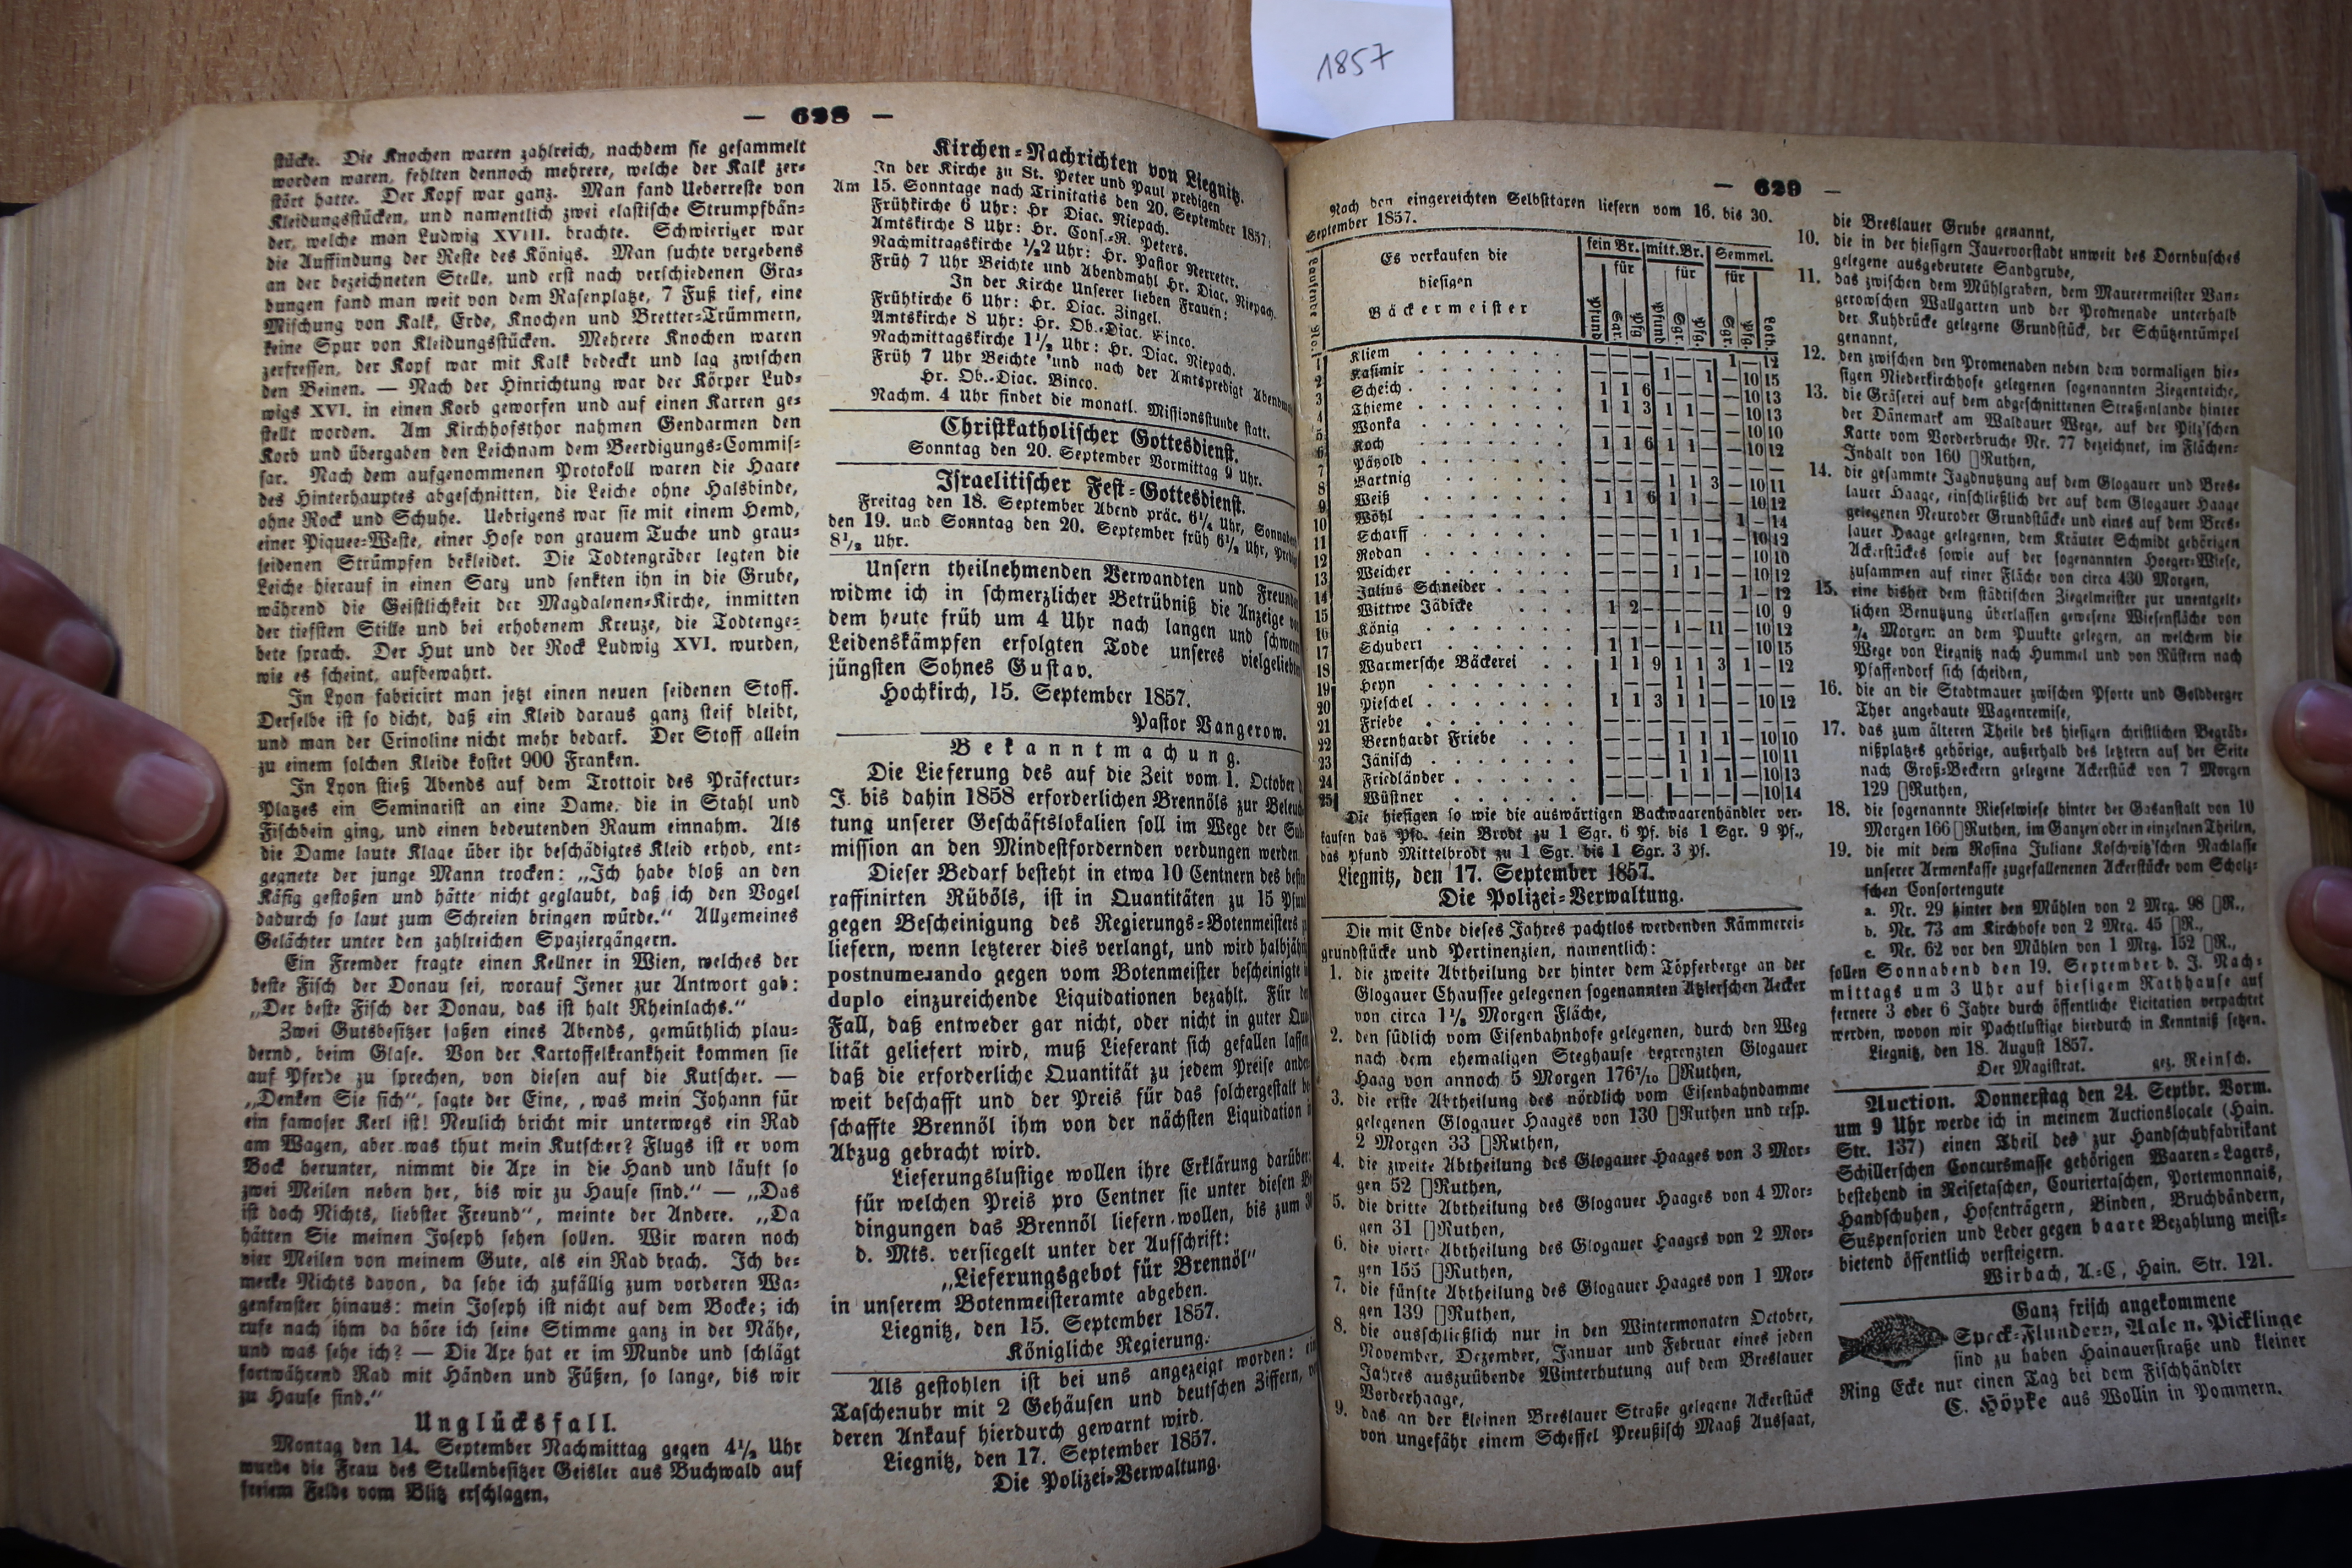 1857
— 628 —
stücke. Die Knochen waren zahlreich, nachdem sie gesammelt
worden waren, fehlten dennoch mehrere, welche der Kalk zer-
stört hatte. Der Kopf war ganz. Man fand Ueberreste von
Kleidungsstücken, und namentlich zwei elastische Strumpfbän-
der, welche man Ludwig XVIII. brachte. Schwieriger war
die Auffindung der Reste des Königs. Man suchte vergebens
an der bezeichneten Stelle, und erst nach verschiedenen Gra-
bungen fand man weit von dem Rasenplatze, 7 Fuß tief, eine
Mischung von Kalk, Erde, Knochen und Bretter-Trümmern,
keine Spur von Kleidungsstücken. Mehrere Knochen waren
zerfressen, der Kopf war mit Kalk bedeckt und lag zwischen
den Beinen. — Nach der Hinrichtung war der Körper Lud-
wigs XVI. in einen Korb geworfen und auf einen Karren ge-
stellt worden. Am Kirchhofsthor nahmen Gendarmen den
Korb und übergaben den Leichnam dem Beerdigungs-Commis-
sar. Nach dem aufgenommenen Protokoll waren die Haare
des Hinterhauptes abgeschnitten, die Leiche ohne Halsbinde,
ohne Rock und Schuhe. Uebrigens war sie mit einem Hemd,
einer Piquee-Weste, einer Hose von grauem Tuche und grau-
seidenen Strümpfen bekleidet. Die Todtengräber legten die
Leiche hierauf in einen Sarg und senkten ihn in die Grube,
während die Geistlichkeit der Magdalenen-Kirche, inmitten
der tiefsten Stille und bei erhobenem Kreuze, die Todtenge-
bete sprach. Der Hut und der Rock Ludwig XVI. wurden,
wie es scheint, aufbewahrt.
In Lyon fabricirt man jetzt einen neuen seidenen Stoff.
Derselbe ist so dicht, daß ein Kleid daraus ganz steif bleibt,
und man der Crinoline nicht mehr bedarf. Der Stoff allein
zu einem solchen Kleide kostet 900 Franken.
In Lyon stieß Abends auf dem Trottoir des Präfectur-
Platzes ein Seminarist an eine Dame, die in Stahl und
Fischbein ging, und einen bedeutenden Raum einnahm. Als
die Dame laute Klage über ihr beschädigtes Kleid erhob, ent-
gegnete der junge Mann trocken: „Ich habe bloß an den
Käfig gestoßen und hätte nicht geglaubt, daß ich den Vogel
dadurch so laut zum Schreien bringen würde.“ Allgemeines
Gelächter unter den zahlreichen Spaziergängern.
Ein Fremder fragte einen Kellner in Wien, welches der
beste Fisch der Donau sei, worauf Jener zur Antwort gab:
„Der beste Fisch der Donau, das ist halt Rheinlachs.“
Zwei Gutsbesitzer saßen eines Abends, gemüthlich plau-
dernd, beim Glase. Von der Kartoffelkrankheit kommen sie
auf Pferde zu sprechen, von diesen auf die Kutscher. —
„Denken Sie sich“, sagte der Eine, „was mein Johann für
ein famoser Kerl ist! Neulich bricht mir unterwegs ein Rad
am Wagen, aber was thut mein Kutscher? Flugs ist er vom
Bock herunter, nimmt die Axe in die Hand und läuft so
zwei Meilen neben her, bis wir zu Hause sind.“ — „Das
ist doch Nichts, liebster Freund“, meinte der Andere. „Da
hätten Sie meinen Joseph sehen sollen. Wir waren noch
vier Meilen von meinem Gute, als ein Rad brach. Ich be-
merke Nichts davon, da sehe ich zufällig zum vorderen Wa-
genfenster hinaus: mein Joseph ist nicht auf dem Bocke; ich
rufe nach ihm da höre ich seine Stimme ganz in der Nähe,
und was sehe ich? — Die Axe hat er im Munde und schlägt
fortwährend Rad mit Händen und Füßen, so lange, bis wir
zu Hause sind.“
Unglücksfall.
Montag den 14. September Nachmittag gegen 4½ Uhr
wurde die Frau des Stellenbesitzer Geisler aus Buchwald auf
freiem Felde vom Blitz erschlagen.
Kirchen-Nachrichten von Liegnitz.
In der Kirche zu St. Peter und Paul predigen
Am 15. Sonntage nach Trinitatis den 20. September 1857:
Frühkirche 6 Uhr: Hr Diac. Niepach.
Amtskirche 8 Uhr: Hr. Cons.-R. Peters.
Nachmittagskirche ½2 Uhr: Hr. Pastor Nerreter.
Früh 7 Uhr Beichte und Abendmahl Hr. Diac. Niepach.
In der Kirche Unserer lieben Frauen:
Frühkirche 6 Uhr: Hr. Diac. Zingel.
Amtskirche 8 Uhr: Hr. Ob.-Diac. Binco.
Nachmittagskirche 1½ Uhr: Hr. Diac. Niepach.
Früh 7 Uhr Beichte und nach der Amtspredigt
Hr. Ob.-Diac. Binco.
Nachm. 4 Uhr findet die monatl. Missionsstunde statt.
Christkatholischer Gottesdienst.
Sonntag den 20. September Vormittag 9 Uhr.
Israelitischer Fest-Gottesdienst.
Freitag den 18. September Abend präc. 6¼ Uhr, Sonnabend
den 19. und Sonntag den 20. September früh 6½ Uhr,
8½ Uhr.
Unsern theilnehmenden Verwandten und
widme ich in schmerzlicher Betrübniß die Anzeige
dem heute früh um 4 Uhr nach langen und
Leidenskämpfen erfolgten Tode unseres
jüngsten Sohnes Gustav.
Hochkirch, 15. September 1857.
Pastor Vangerow.
Bekanntmachung.
Die Lieferung des auf die Zeit vom 1. October
J. bis dahin 1858 erforderlichen Brennöls zur
tung unserer Geschäftslokalien soll im Wege der
mission an den Mindestfordernden verdungen werden.
Dieser Bedarf besteht in etwa 10 Centnern des
raffinirten Rüböls, ist in Quantitäten zu 15
gegen Bescheinigung des Regierungs-Botenmeisters
liefern, wenn letzterer dies verlangt, und wird
postnumerando gegen vom Botenmeister bescheinigte
duplo einzureichende Liquidationen bezahlt. Für
Fall, daß entweder gar nicht, oder nicht in guter
lität geliefert wird, muß Lieferant sich gefallen
daß die erforderliche Quantität zu jedem Preise
weit beschafft und der Preis für das solchergestalt
schaffte Brennöl ihm von der nächsten Liquidation
Abzug gebracht wird.
Lieferungslustige wollen ihre Erklärung darüber:
für welchen Preis pro Centner sie unter diesen
dingungen das Brennöl liefern wollen, bis zum
d. Mts. versiegelt unter der Aufschrift:
„Lieferungsgebot für Brennöl“
in unserem Botenmeisteramte abgeben.
Liegnitz, den 15. September 1857.
Königliche Regierung.
Als gestohlen ist bei uns angezeigt worden:
Taschenuhr mit 2 Gehäusen und deutschen Ziffern,
deren Ankauf hierdurch gewarnt wird.
Liegnitz, den 17. September 1857.
Die Polizei-Verwaltung.
— 629 —
Nach den eingereichten Selbsttaxen liefern vom 16. bis 30.
September 1857.
Laufende No.
Es verkaufen die
hiesigen
Bäckermeister
fein Br. mitt.Br. Semmel.
für für für
Pfund Sgr. Pfg Pfund Sgr. Pfg. Sgr. Pfg. Loth.
1 Kliem — — — — — — 1 — 12
2 Kasimir — — — 1 — 1 — 10 15
3 Scheich 1 1 6 — — — — 10 13
4 Thieme 1 1 3 1 1 — — 10 13
5 Wonka — — — — — — — 10 10
6 Koch 1 1 6 1 1 — — 10 12
7 Pätzold — — — — — — — — —
8 Bartnig — — — 1 1 3 — 10 11
9 Weiß 1 1 6 1 1 — — 10 12
10 Wöhl — — — — — — 1 — 14
11 Scharff — — — 1 1 — — 10 12
12 Rodan — — — — — — — 10 10
13 Weicher — — — 1 1 — — 10 12
14 Julius Schneider — — — — — — 1 — 12
15 Wittwe Jädicke 1 2 — — — — — 10 9
16 König — — — 1 — 11 — 10 12
17 Schubert 1 1 — — — — — 10 15
18 Warmersche Bäckerei 1 1 9 1 1 3 1 — 12
19 Heyn — — — 1 1 — — — —
20 Pieschel 1 1 3 1 1 — — 10 12
21 Friebe — — — — — — — — —
22 Bernhardt Friebe — — — 1 1 1 — 10 10
23 Jänisch — — — 1 1 — — 10 11
24 Friedländer — — — 1 1 1 — 10 13
25 Wüstner — — — — — — — 10 14
Die hiesigen so wie die auswärtigen Backwaarenhändler ver-
kaufen das Pfd. fein Brodt zu 1 Sgr. 6 Pf. bis 1 Sgr. 9 Pf.,
das Pfund Mittelbrodt zu 1 Sgr. bis 1 Sgr. 3 Pf.
Liegnitz, den 17. September 1857.
Die Polizei-Verwaltung.
Die mit Ende dieses Jahres pachtlos werdenden Kämmerei-
grundstücke und Pertinenzien, namentlich:
1. die zweite Abtheilung der hinter dem Töpferberge an der
Glogauer Chaussee gelegenen sogenannten Ätzlerschen Aecker
von circa 1½ Morgen Fläche,
2. den südlich vom Eisenbahnhofe gelegenen, durch den Weg
nach dem ehemaligen Steghause begrenzten Glogauer
Haag von annoch 5 Morgen 176⁷/₁₀ □Ruthen,
3. die erste Abtheilung des nördlich vom Eisenbahndamme
gelegenen Glogauer Haages von 130 □Ruthen und resp.
2 Morgen 33 □Ruthen,
4. die zweite Abtheilung des Glogauer Haages von 3 Mor-
gen 52 □Ruthen,
5. die dritte Abtheilung des Glogauer Haages von 4 Mor-
gen 31 □Ruthen,
6. die vierte Abtheilung des Glogauer Haages von 2 Mor-
gen 155 □Ruthen,
7. die fünfte Abtheilung des Glogauer Haages von 1 Mor-
gen 139 □Ruthen,
8. die ausschließlich nur in den Wintermonaten October,
November, Dezember, Januar und Februar eines jeden
Jahres auszuübende Winterhutung auf dem Breslauer
Vorderhaage,
9. das an der kleinen Breslauer Straße gelegene Ackerstück
von ungefähr einem Scheffel Preußisch Maaß Aussaat,
die Breslauer Grube genannt,
10. die in der hiesigen Jauervorstadt unweit des Dornbusches
gelegene ausgebeutete Sandgrube,
11. das zwischen dem Mühlgraben, dem Maurermeister Van-
gerowschen Wallgarten und der Promenade unterhalb
der Kuhbrücke gelegene Grundstück, der Schützentümpel
genannt,
12. den zwischen den Promenaden neben dem vormaligen hie-
sigen Niederkirchhofe gelegenen sogenannten Ziegenteiche,
13. die Gräserei auf dem abgeschnittenen Straßenlande hinter
der Dänemark am Waldauer Wege, auf der Pilz'schen
Karte vom Vorderbruche Nr. 77 bezeichnet, im Flächen-
Inhalt von 160 □Ruthen,
14. die gesammte Jagdnutzung auf dem Glogauer und Bres-
lauer Haage, einschließlich der auf dem Glogauer Haage
gelegenen Neuroder Grundstücke und eines auf dem Bres-
lauer Haage gelegenen, dem Kräuter Schmidt gehörigen
Ackerstückes sowie auf der sogenannten Hoeger-Wiese,
zusammen auf einer Fläche von circa 430 Morgen,
15. eine bisher dem städtischen Ziegelmeister zur unentgelt-
lichen Benutzung überlassen gewesene Wiesenfläche von
¾ Morgen an dem Punkte gelegen, an welchem die
Wege von Liegnitz nach Hummel und von Rüstern nach
Pfaffendorf sich scheiden,
16. die an die Stadtmauer zwischen Pforte und Goldberger
Thor angebaute Wagenremise,
17. das zum älteren Theile des hiesigen christlichen Begräb-
nißplatzes gehörige, außerhalb des letztern auf der Seite
nach Groß-Beckern gelegene Ackerstück von 7 Morgen
129 □Ruthen,
18. die sogenannte Rieselwiese hinter der Gasanstalt von 10
Morgen 166 □Ruthen, im Ganzen oder in einzelnen Theilen,
19. die mit dem Rosina Juliane Koschwitz'schen Nachlasse
unserer Armenkasse zugefallenenen Ackerstücke vom Scholz-
schen Consortengute
a. Nr. 29 hinter den Mühlen von 2 Mrg. 98 □R.,
b. Nr. 73 am Kirchhofe von 2 Mrg. 45 □R.,
c. Nr. 62 vor den Mühlen von 1 Mrg. 152 □R.,
sollen Sonnabend den 19. September d. J. Nach-
mittags um 3 Uhr auf hiesigem Rathhause auf
fernere 3 oder 6 Jahre durch öffentliche Licitation verpachtet
werden, wovon wir Pachtlustige hierdurch in Kenntniß setzen.
Liegnitz, den 18. August 1857.
Der Magistrat. gez. Reinsch.
Auction. Donnerstag den 24. Septbr. Vorm.
um 9 Uhr werde ich in meinem Auctionslocale (Hain.
Str. 137) einen Theil des zur Handschuhfabrikant
Schillerschen Concursmasse gehörigen Waaren-Lagers,
bestehend in Reisetaschen, Couriertaschen, Portemonnais,
Handschuhen, Hosenträgern, Binden, Bruchbändern,
Suspensorien und Leder gegen baare Bezahlung meist-
bietend öffentlich versteigern.
Wirbach, A.-C, Hain. Str. 121.
Ganz frisch angekommene
Speck-Flundern, Aale u. Picklinge
sind zu haben Hainauerstraße und kleiner
Ring Ecke nur einen Tag bei dem Fischhändler
C. Höpke aus Wollin in Pommern.